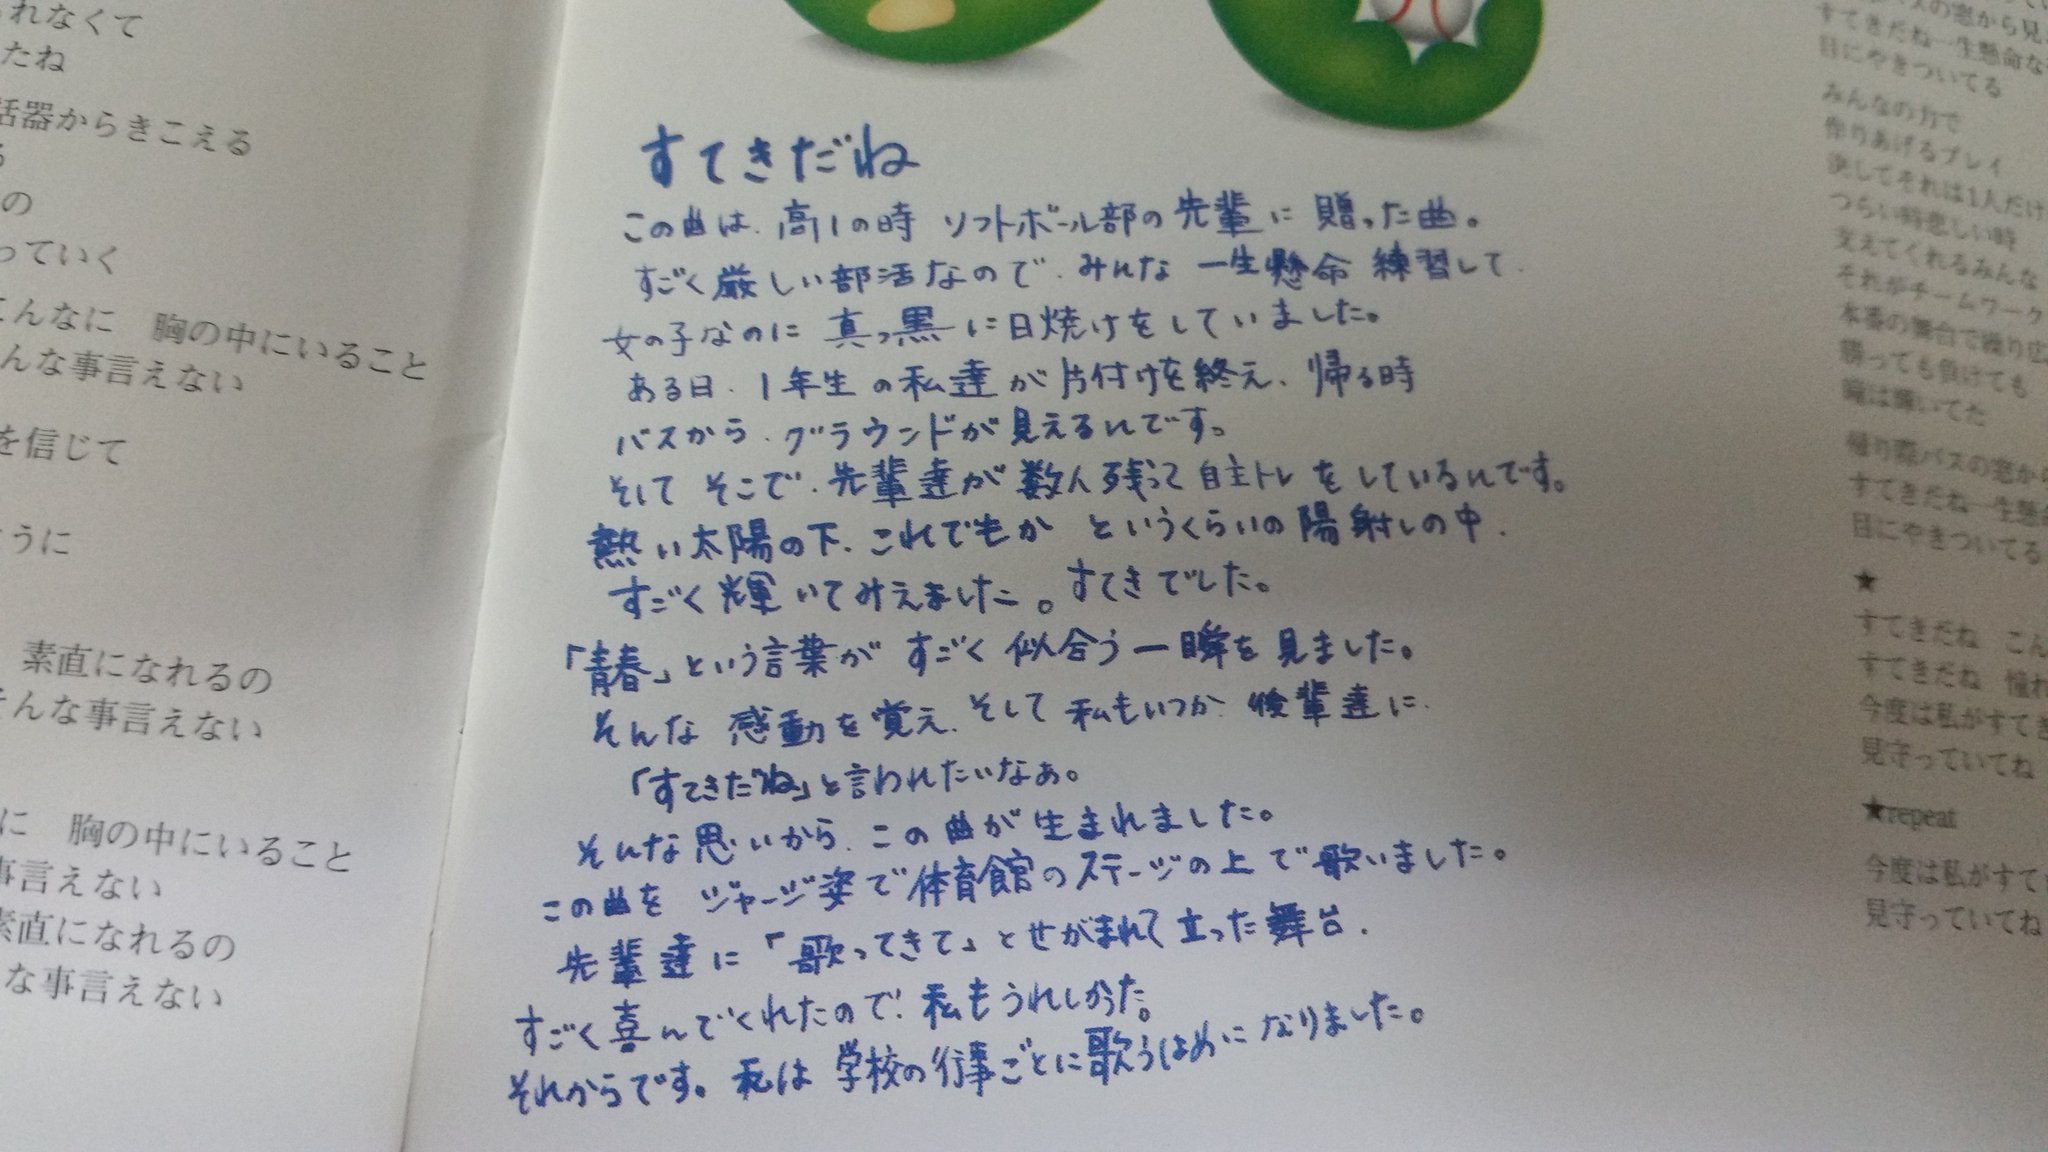 れなくて
たね
話器からきこえる
る
の
っていく
こんなに　胸の中にいること
んな事言えない
を信じて
うに
素直になれるの
そんな事言えない
に　胸の中にいること
事言えない
素直になれるの
な事言えない
すてきだね
この曲は、高1の時 ソフトボール部の先輩に 贈った曲。
すごく厳しい部活なので、みんな 一生懸命 練習して、
女の子なのに 真っ黒に日焼けをしていました。
ある日、1年生の私達が片付けを終え、帰る時
バスから、グラウンドが見えるんです。
そして そこで、先輩達が数人残って自主トレをしているんです。
熱い太陽の下、これでもか というくらいの陽射しの中、
すごく輝いてみえました。すてきでした。
「青春」という言葉が すごく似合う一瞬を見ました。
そんな 感動を覚え、そして私もいつか、後輩達に、
「すてきだね」と言われたいなぁ。
そんな思いから、この曲が生まれました。
この曲を ジャージ姿で体育館のステージの上で歌いました。
先輩達に「歌ってきて」とせがまれて立った舞台、
すごく喜んでくれたので、私もうれしかった。
それからです。私は 学校の行事ごとに歌うはめになりました。
バスの窓から見
すてきだね一生懸命な
目にやきついてる
みんなの力で
作りあげるプレイ
決してそれは1人だけ
つらい時悲しい時
支えてくれるみんな
それがチームワーク
本番の舞台で繰り広
勝っても負けても
瞳は輝いてた
帰り際バスの窓から
すてきだね一生懸命
目にやきついてる
★
すてきだね　こん
すてきだね　憧れ
今度は私がすてき
見守っていてね
★repeat
今度は私がすて
見守っていてね